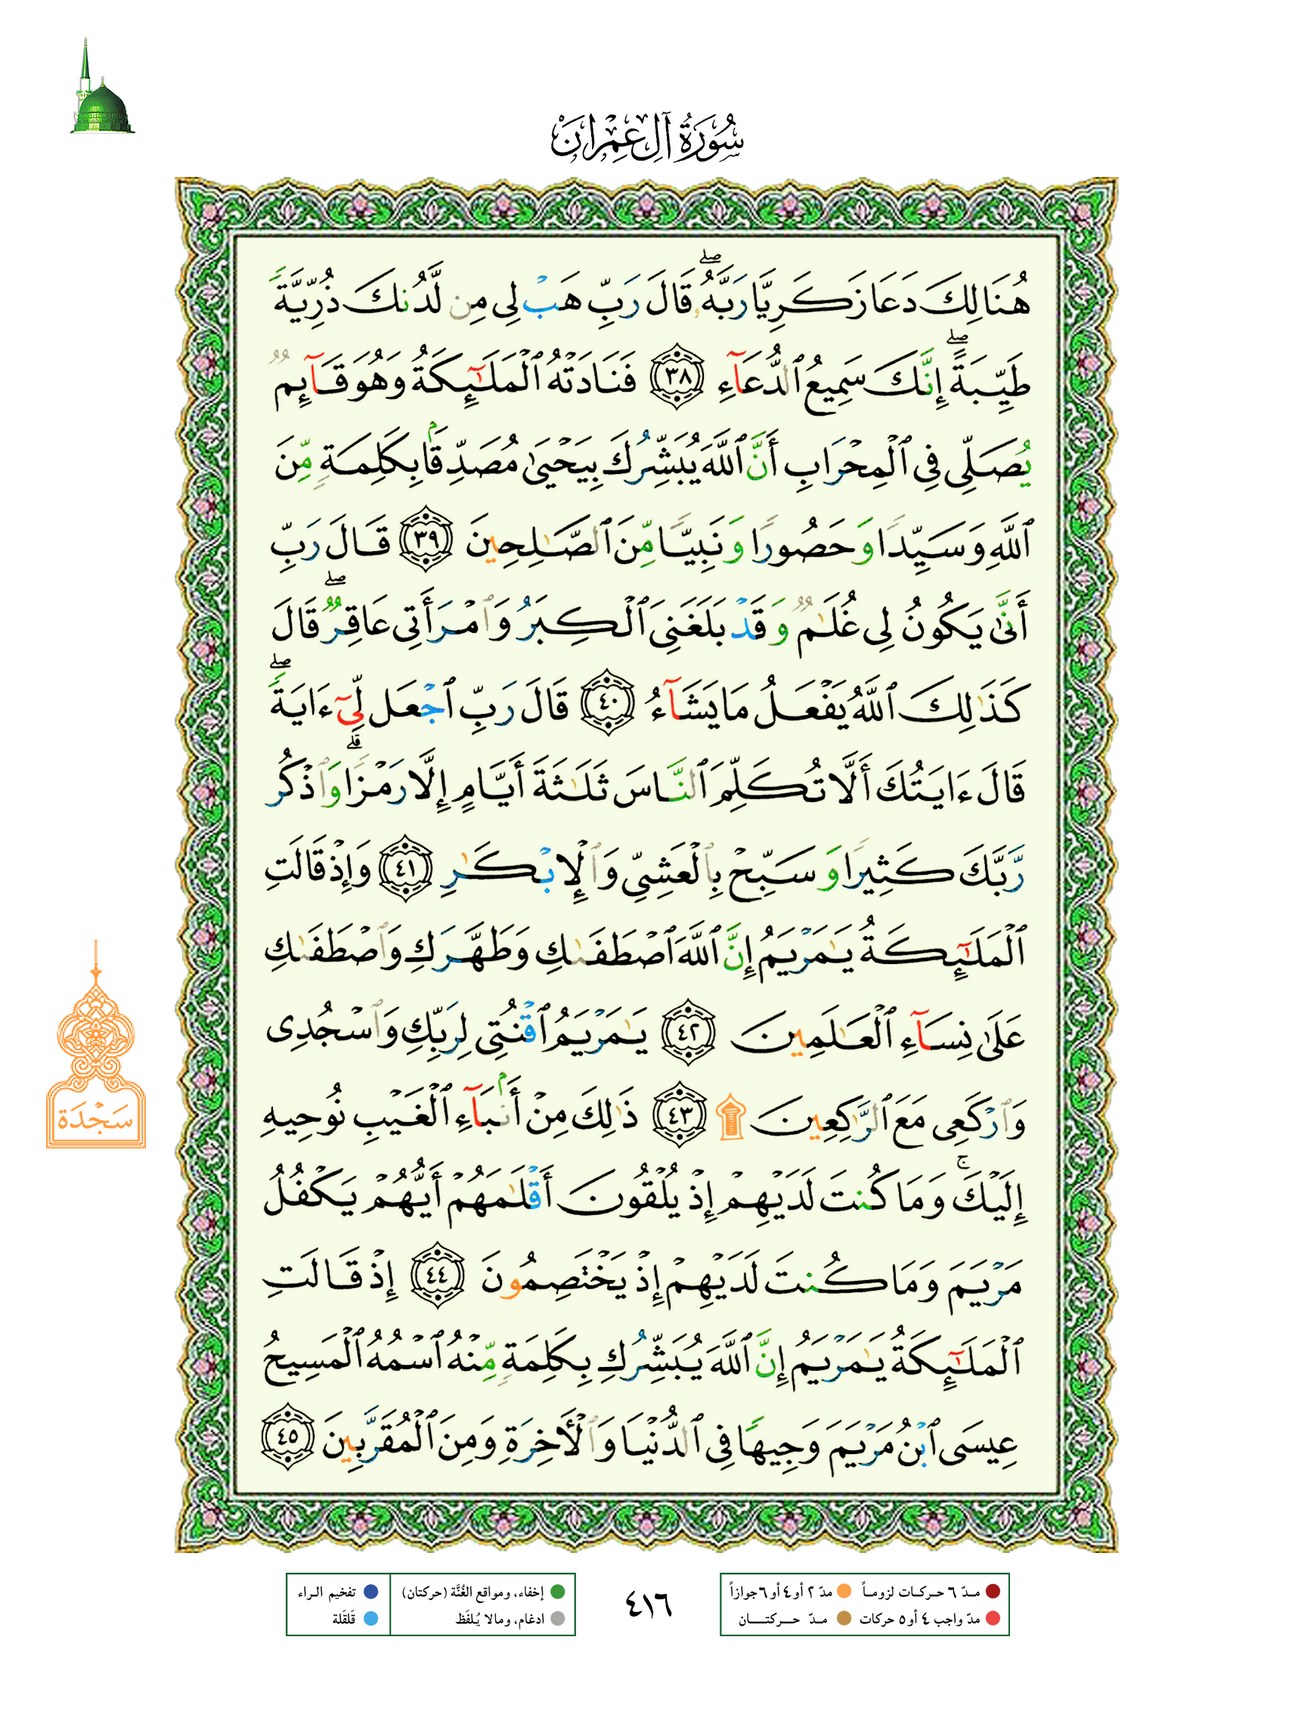 سُورَةُ آلِ عِمْرَانَ
هُنَالِكَ دَعَا زَكَرِيَّا رَبَّهُۥۖ قَالَ رَبِّ هَبْ لِى مِن لَّدُنكَ ذُرِّيَّةً
طَيِّبَةًۖ إِنَّكَ سَمِيعُ ٱلدُّعَآءِ ٣٨ فَنَادَتْهُ ٱلْمَلَٰٓئِكَةُ وَهُوَ قَآئِمٌ
يُصَلِّى فِى ٱلْمِحْرَابِ أَنَّ ٱللَّهَ يُبَشِّرُكَ بِيَحْيَىٰ مُصَدِّقًۢا بِكَلِمَةٍ مِّنَ
ٱللَّهِ وَسَيِّدًا وَحَصُورًا وَنَبِيًّا مِّنَ ٱلصَّٰلِحِينَ ٣٩ قَالَ رَبِّ
أَنَّىٰ يَكُونُ لِى غُلَٰمٌ وَقَدْ بَلَغَنِىَ ٱلْكِبَرُ وَٱمْرَأَتِى عَاقِرٌۖ قَالَ
كَذَٰلِكَ ٱللَّهُ يَفْعَلُ مَا يَشَآءُ ٤٠ قَالَ رَبِّ ٱجْعَل لِّىٓ ءَايَةًۖ
قَالَ ءَايَتُكَ أَلَّا تُكَلِّمَ ٱلنَّاسَ ثَلَٰثَةَ أَيَّامٍ إِلَّا رَمْزًاۗ وَٱذْكُر
رَّبَّكَ كَثِيرًا وَسَبِّحْ بِٱلْعَشِىِّ وَٱلْإِبْكَٰرِ ٤١ وَإِذْ قَالَتِ
ٱلْمَلَٰٓئِكَةُ يَٰمَرْيَمُ إِنَّ ٱللَّهَ ٱصْطَفَىٰكِ وَطَهَّرَكِ وَٱصْطَفَىٰكِ
عَلَىٰ نِسَآءِ ٱلْعَٰلَمِينَ ٤٢ يَٰمَرْيَمُ ٱقْنُتِى لِرَبِّكِ وَٱسْجُدِى
وَٱرْكَعِى مَعَ ٱلرَّٰكِعِينَ ۩ ٤٣ ذَٰلِكَ مِنْ أَنۢبَآءِ ٱلْغَيْبِ نُوحِيهِ
إِلَيْكَۚ وَمَا كُنتَ لَدَيْهِمْ إِذْ يُلْقُونَ أَقْلَٰمَهُمْ أَيُّهُمْ يَكْفُلُ
مَرْيَمَ وَمَا كُنتَ لَدَيْهِمْ إِذْ يَخْتَصِمُونَ ٤٤ إِذْ قَالَتِ
ٱلْمَلَٰٓئِكَةُ يَٰمَرْيَمُ إِنَّ ٱللَّهَ يُبَشِّرُكِ بِكَلِمَةٍ مِّنْهُ ٱسْمُهُ ٱلْمَسِيحُ
عِيسَى ٱبْنُ مَرْيَمَ وَجِيهًا فِى ٱلدُّنْيَا وَٱلْءَاخِرَةِ وَمِنَ ٱلْمُقَرَّبِينَ ٤٥
سَجْدَة
مـدّ ٦ حـركـات لزومـاً مدّ ٢ أو ٤ أو ٦ جوازاً
مدّ واجب ٤ أو ٥ حركات مـدّ حــركتــــان
٤١٦
إخفاء، ومواقع الغُنَّة (حركتان) تفخيم الـراء
ادغام، ومالا يُـلفَظ قَلقَلة